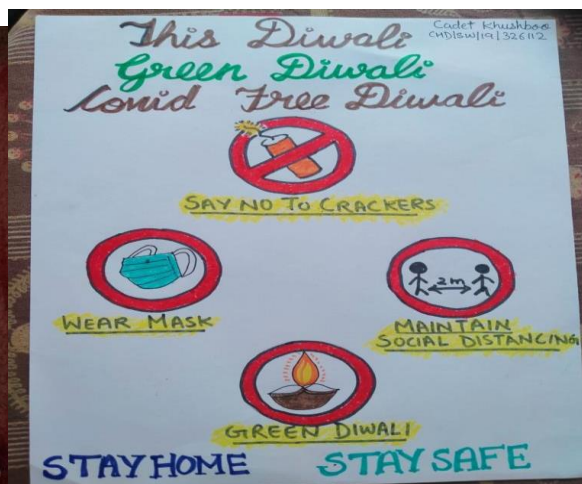 Cadet Khushboo
CHD/SW/19/326112
This Diwali
Green Diwali
Covid Free Diwali
SAY NO TO CRACKERS
2m
WEAR MASK
MAINTAIN
SOCIAL DISTANCING
GREEN DIWALI
STAY HOME STAY SAFE